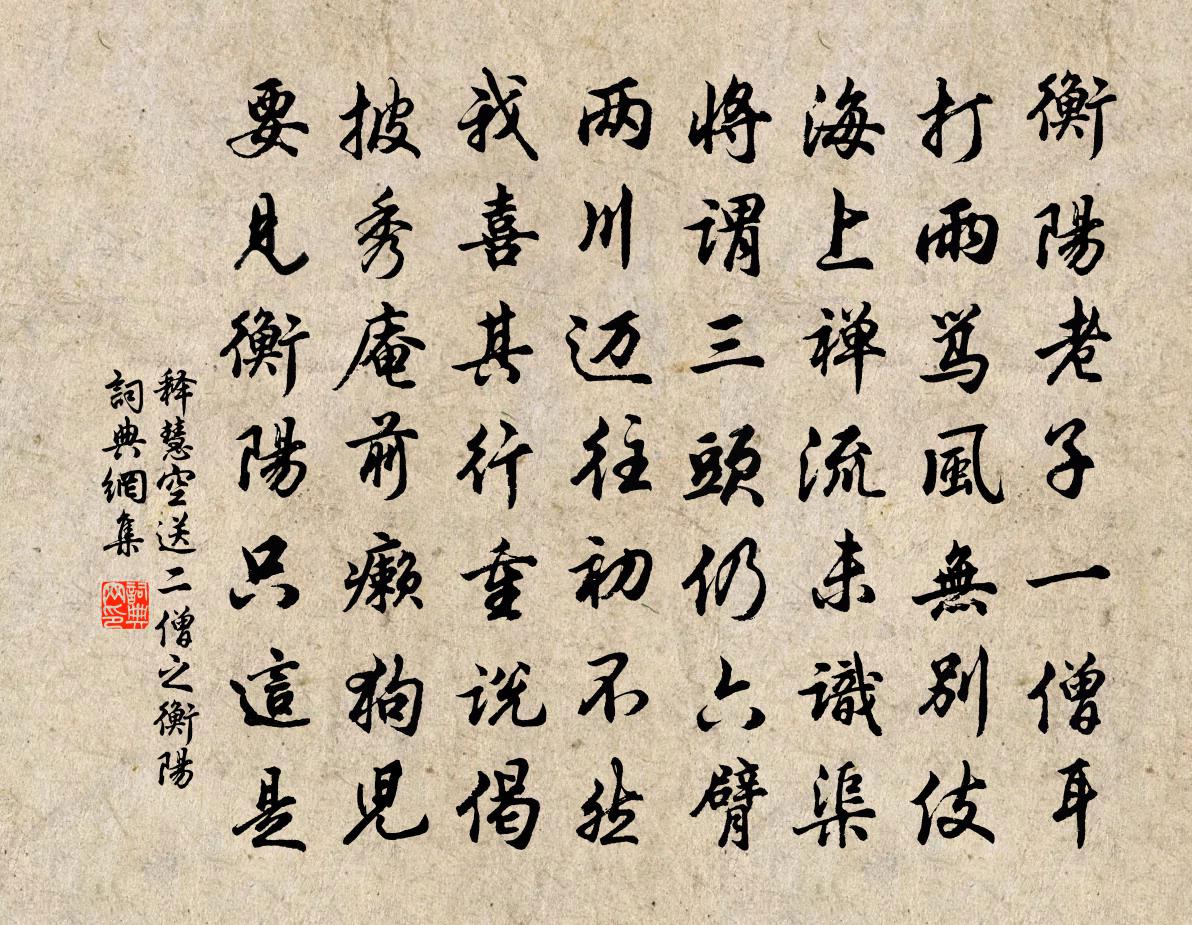 衡陽老子一僧耳
打雨骂風無別伎
海上禅流未識渠
将謂三頭仍六臂
两川迈往初不然
我喜其行重说偈
披秀庵前癞狗児
要見衡陽只這是
释慧空送二僧之衡陽
詞典網集
詞典网印